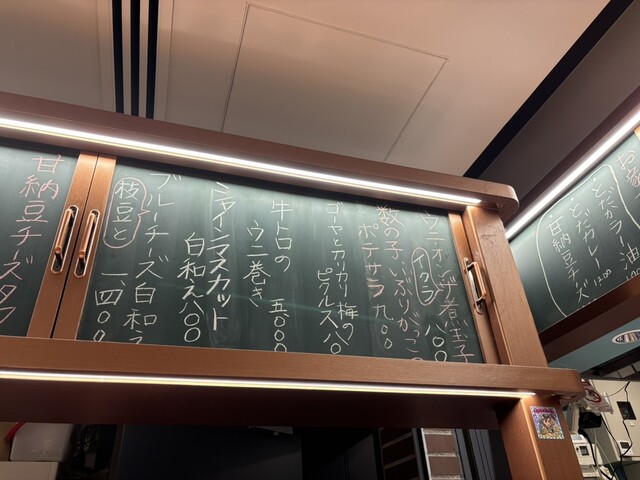 ウニオン半煮玉子
イクラ 八〇〇
数の子いぶりがっこ
ポテサラ 九〇〇
ゴーヤとカリカリ梅の
ピクルス 八〇
牛トロの
ウニ巻き 五〇〇
シャインマスカット
白和え 八〇〇
枝豆と
ブルーチーズ白和え
一、四〇〇
甘納豆チーズ
とだカラ
とだカレー 1200
甘納豆チーズ